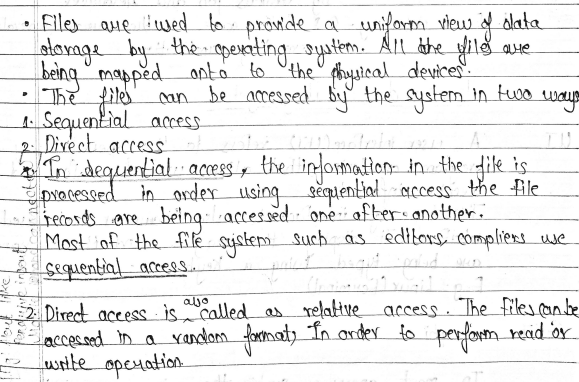 • Files are used to provide a uniform view of data
storage by the operating system. All the files are
being mapped onto to the physical devices.
• The files can be accessed by the system in two ways
1. Sequential access
2. Direct access
1. In sequential access, the information in the file is
processed in order using sequential access the file
records are being accessed one after another.
Most of the file system such as editors, compliers use
sequential access.
2. Direct access is also called as relative access. The files can be
accessed in a random format, In order to perform read or
write operation.